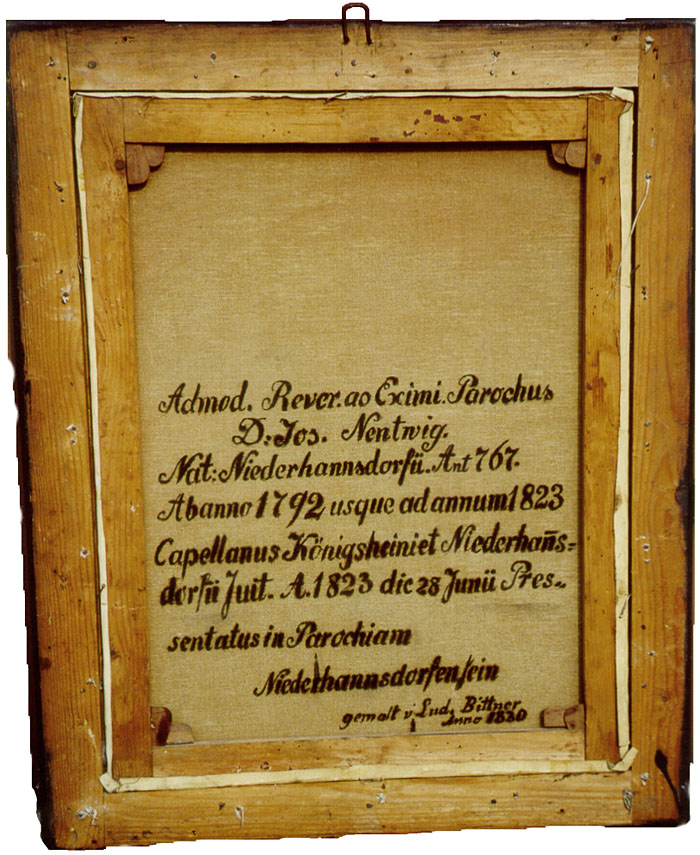 Admod. Rever. ao Eximi. Parochus
D: Jos. Nentwig.
Nat: Niederhannsdorfii. Ant 767.
Ab anno 1792 usque ad annum 1823
Capellanus Königsheini et Niederhan̄s-
dorfii Juit. A. 1823 die 28 Junii Pres-
sentatus in Parochiam
Niederhannsdorfensein
gemalt v. Lud. Bittner
Anno 1830